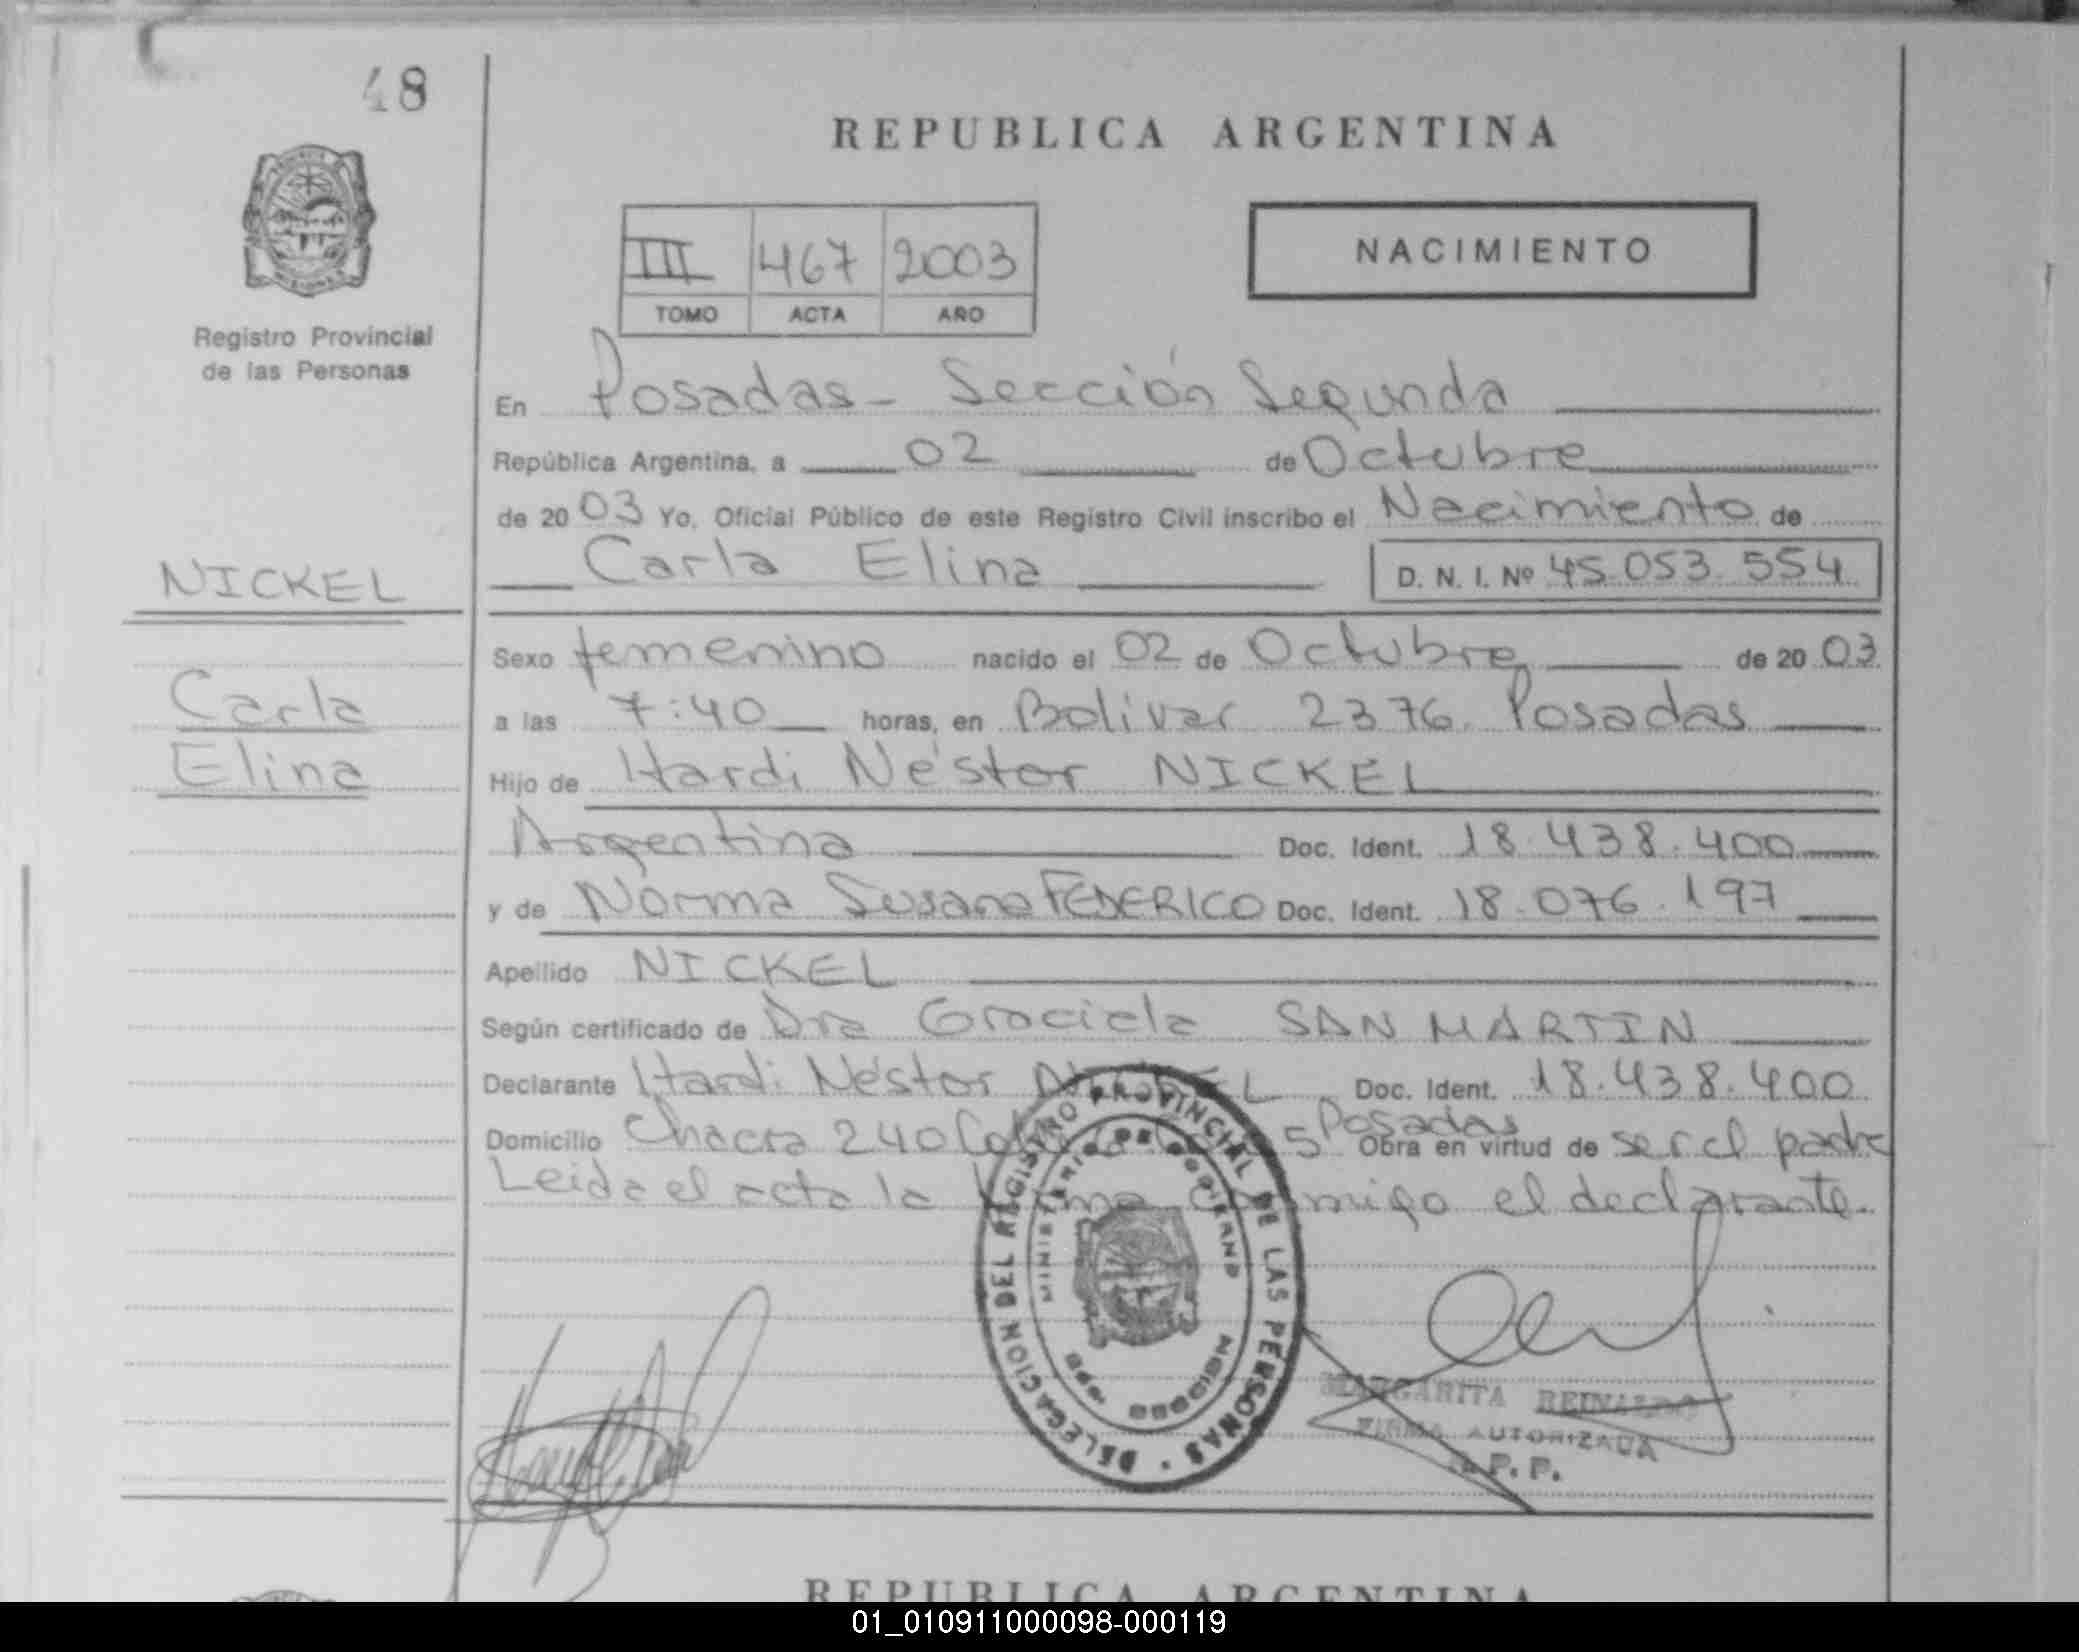 48
REPUBLICA ARGENTINA
III 467 2003
TOMO ACTA AÑO
NACIMIENTO
Registro Provincial
de las Personas
En Posadas - Sección Segunda
República Argentina, a 02 de Octubre
de 20 03 Yo, Oficial Público de este Registro Civil inscribo el Nacimiento de
Carla Elina D. N. I. Nº 45.053.554
NICKEL
Carla
Elina
Sexo femenino nacido el 02 de Octubre de 20 03
a las 7:40 horas, en Bolivar 2376 Posadas
Hijo de Hardi Néstor NICKEL
Argentina Doc. Ident. 18.438.400
y de Norma Susana FEDERICO Doc. Ident. 18.076.197
Apellido NICKEL
Según certificado de Dra Graciela SAN MARTIN
Declarante Hardi Néstor NICKEL Doc. Ident. 18.438.400
Domicilio Chacra 240 5 Posadas Obra en virtud de ser el padre
Leida el acta la firma conmigo el declarante.
DELEGACION DEL REGISTRO PROVINCIAL DE LAS PERSONAS
MINISTERIO DE GOBIERNO
MARGARITA REINALDO
FIRMA AUTORIZADA
R. P. P.
REPUBLICA ARGENTINA
01_010911000098-000119